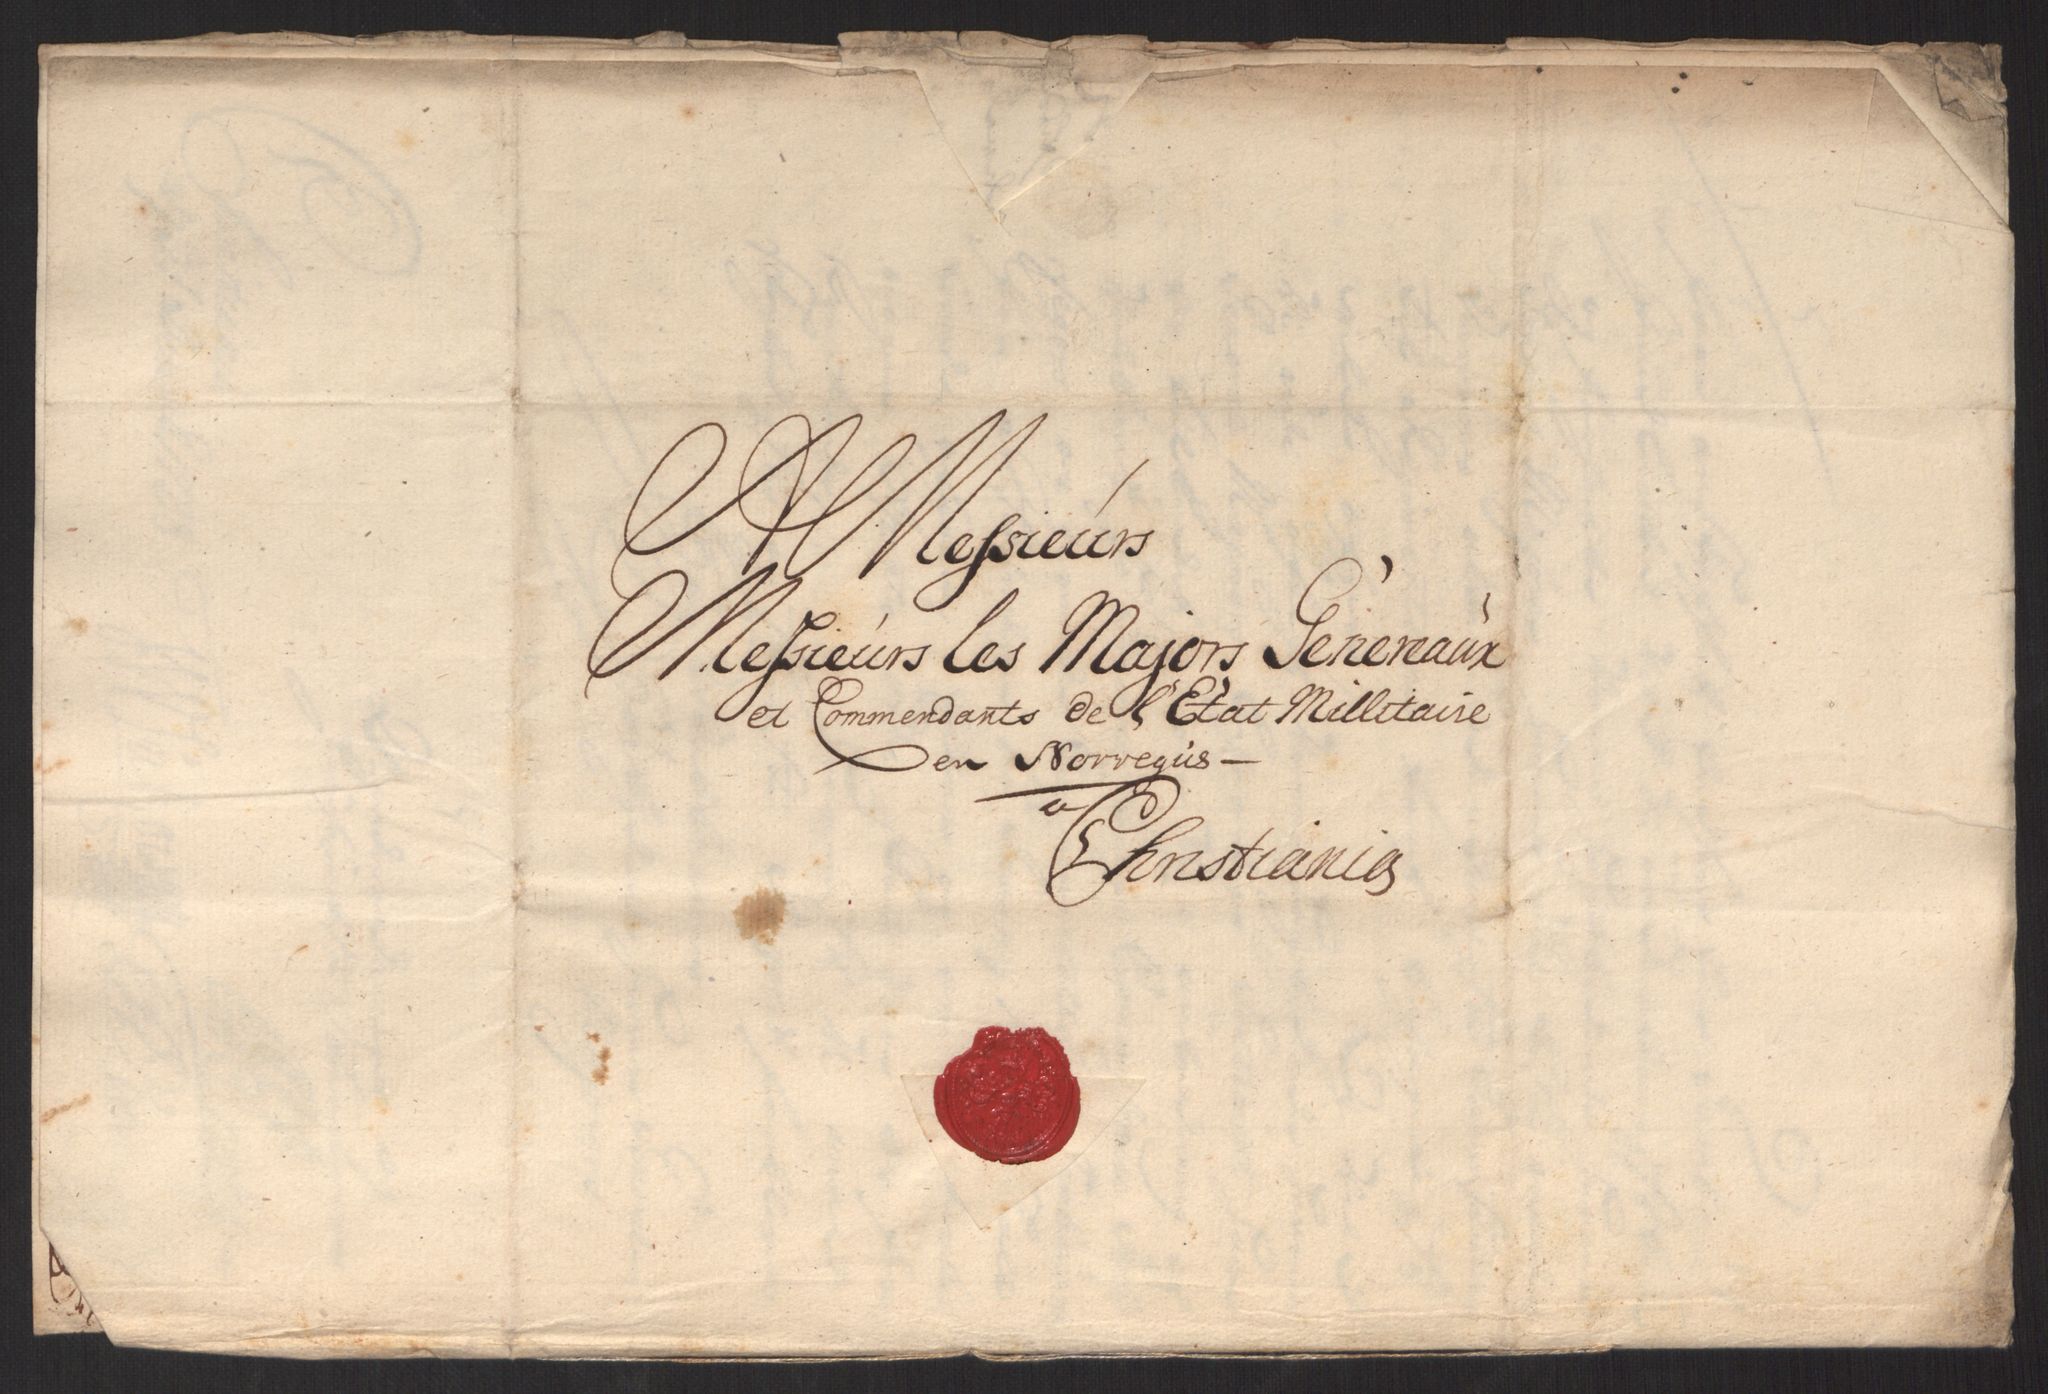 A Messieurs
Messieurs les Majors Génereaux
et Commendants de l'Etat Millitaire
en Norvegue
a
Christiania